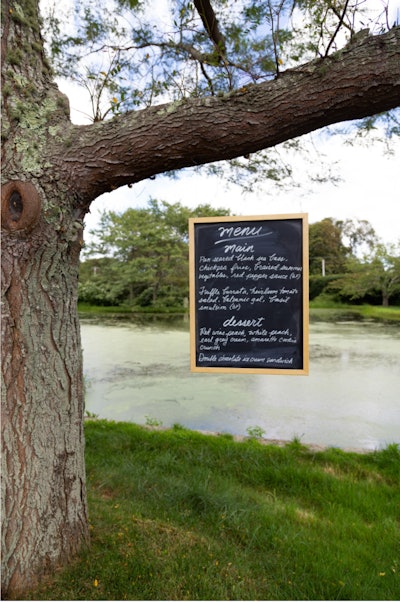 menu
main
Pan seared black sea bass,
Chickpea fries, braised summer
vegetables, red pepper sauce (GF)
Truffle burrata, heirloom tomato
salad, balsamic gel, basil
emulsion (GF)
dessert
Red wine peach, white peach,
earl grey cream, amaretto cookie
crunch
Double chocolate ice cream sandwich